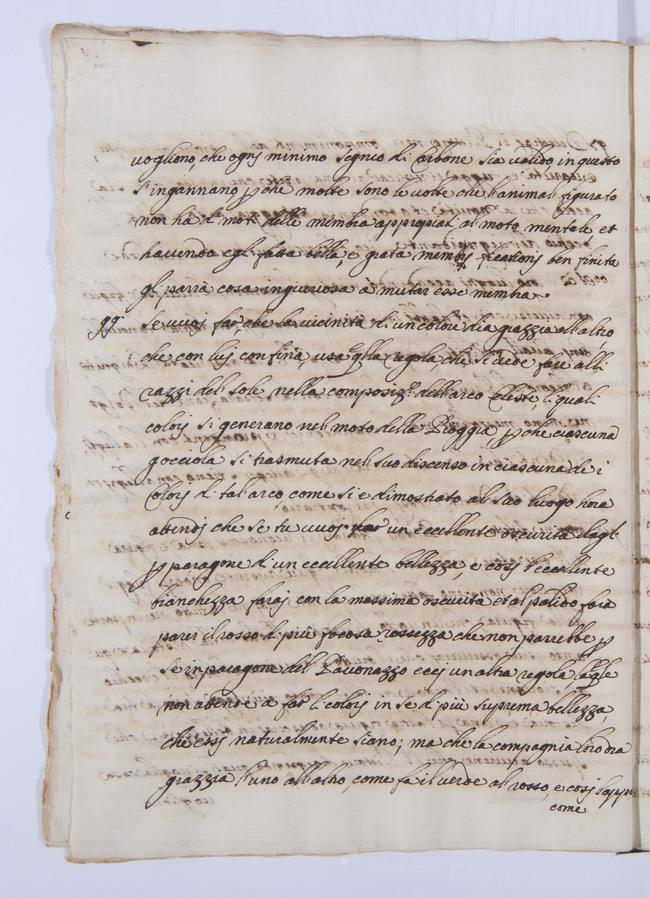 vogliono, che ogni minimo segnio di Carbone sia valido, in questo
s'ingannano, p che molte sono le volte che l'animal figurato
non ha li moti delle membra appropiati al moto mentale et
havendo egli fatta bella, e grata ben finita
gli parrà cosa ingiuriosa a mutar esse membra
99. Se vuoi far, che la vicinità di un colore dia grazzia all'altro,
che con lui confina, usa qlla regola, che si vede fare alli
razzi del sole nella composize dell'arco Celeste, li quali
colori si generano nel moto della Pioggia, p che ciascuna
gocciola si trasmuta nel suo discenso in ciascuna di i
Colori di tal arco, come si è dimostrato al suo luogo hora
attendi che se tu vuoi far un eccellente oscurità dagli
p paragone d'un eccellente bellezza, e così l'eccellente
bianchezza farai con la massima oscurità et al palido farà
parer il rosso di più focosa rossezza che non parrebbe p
se in paragone del Pavonazzo ecci un altra regola la qle
non attende a far li colori in se di più suprema bellezza,
che essi naturalmente siano; ma che la compagnia loro dia
grazzia l'uno all'altro, come fa il verde al rosso, e così
come